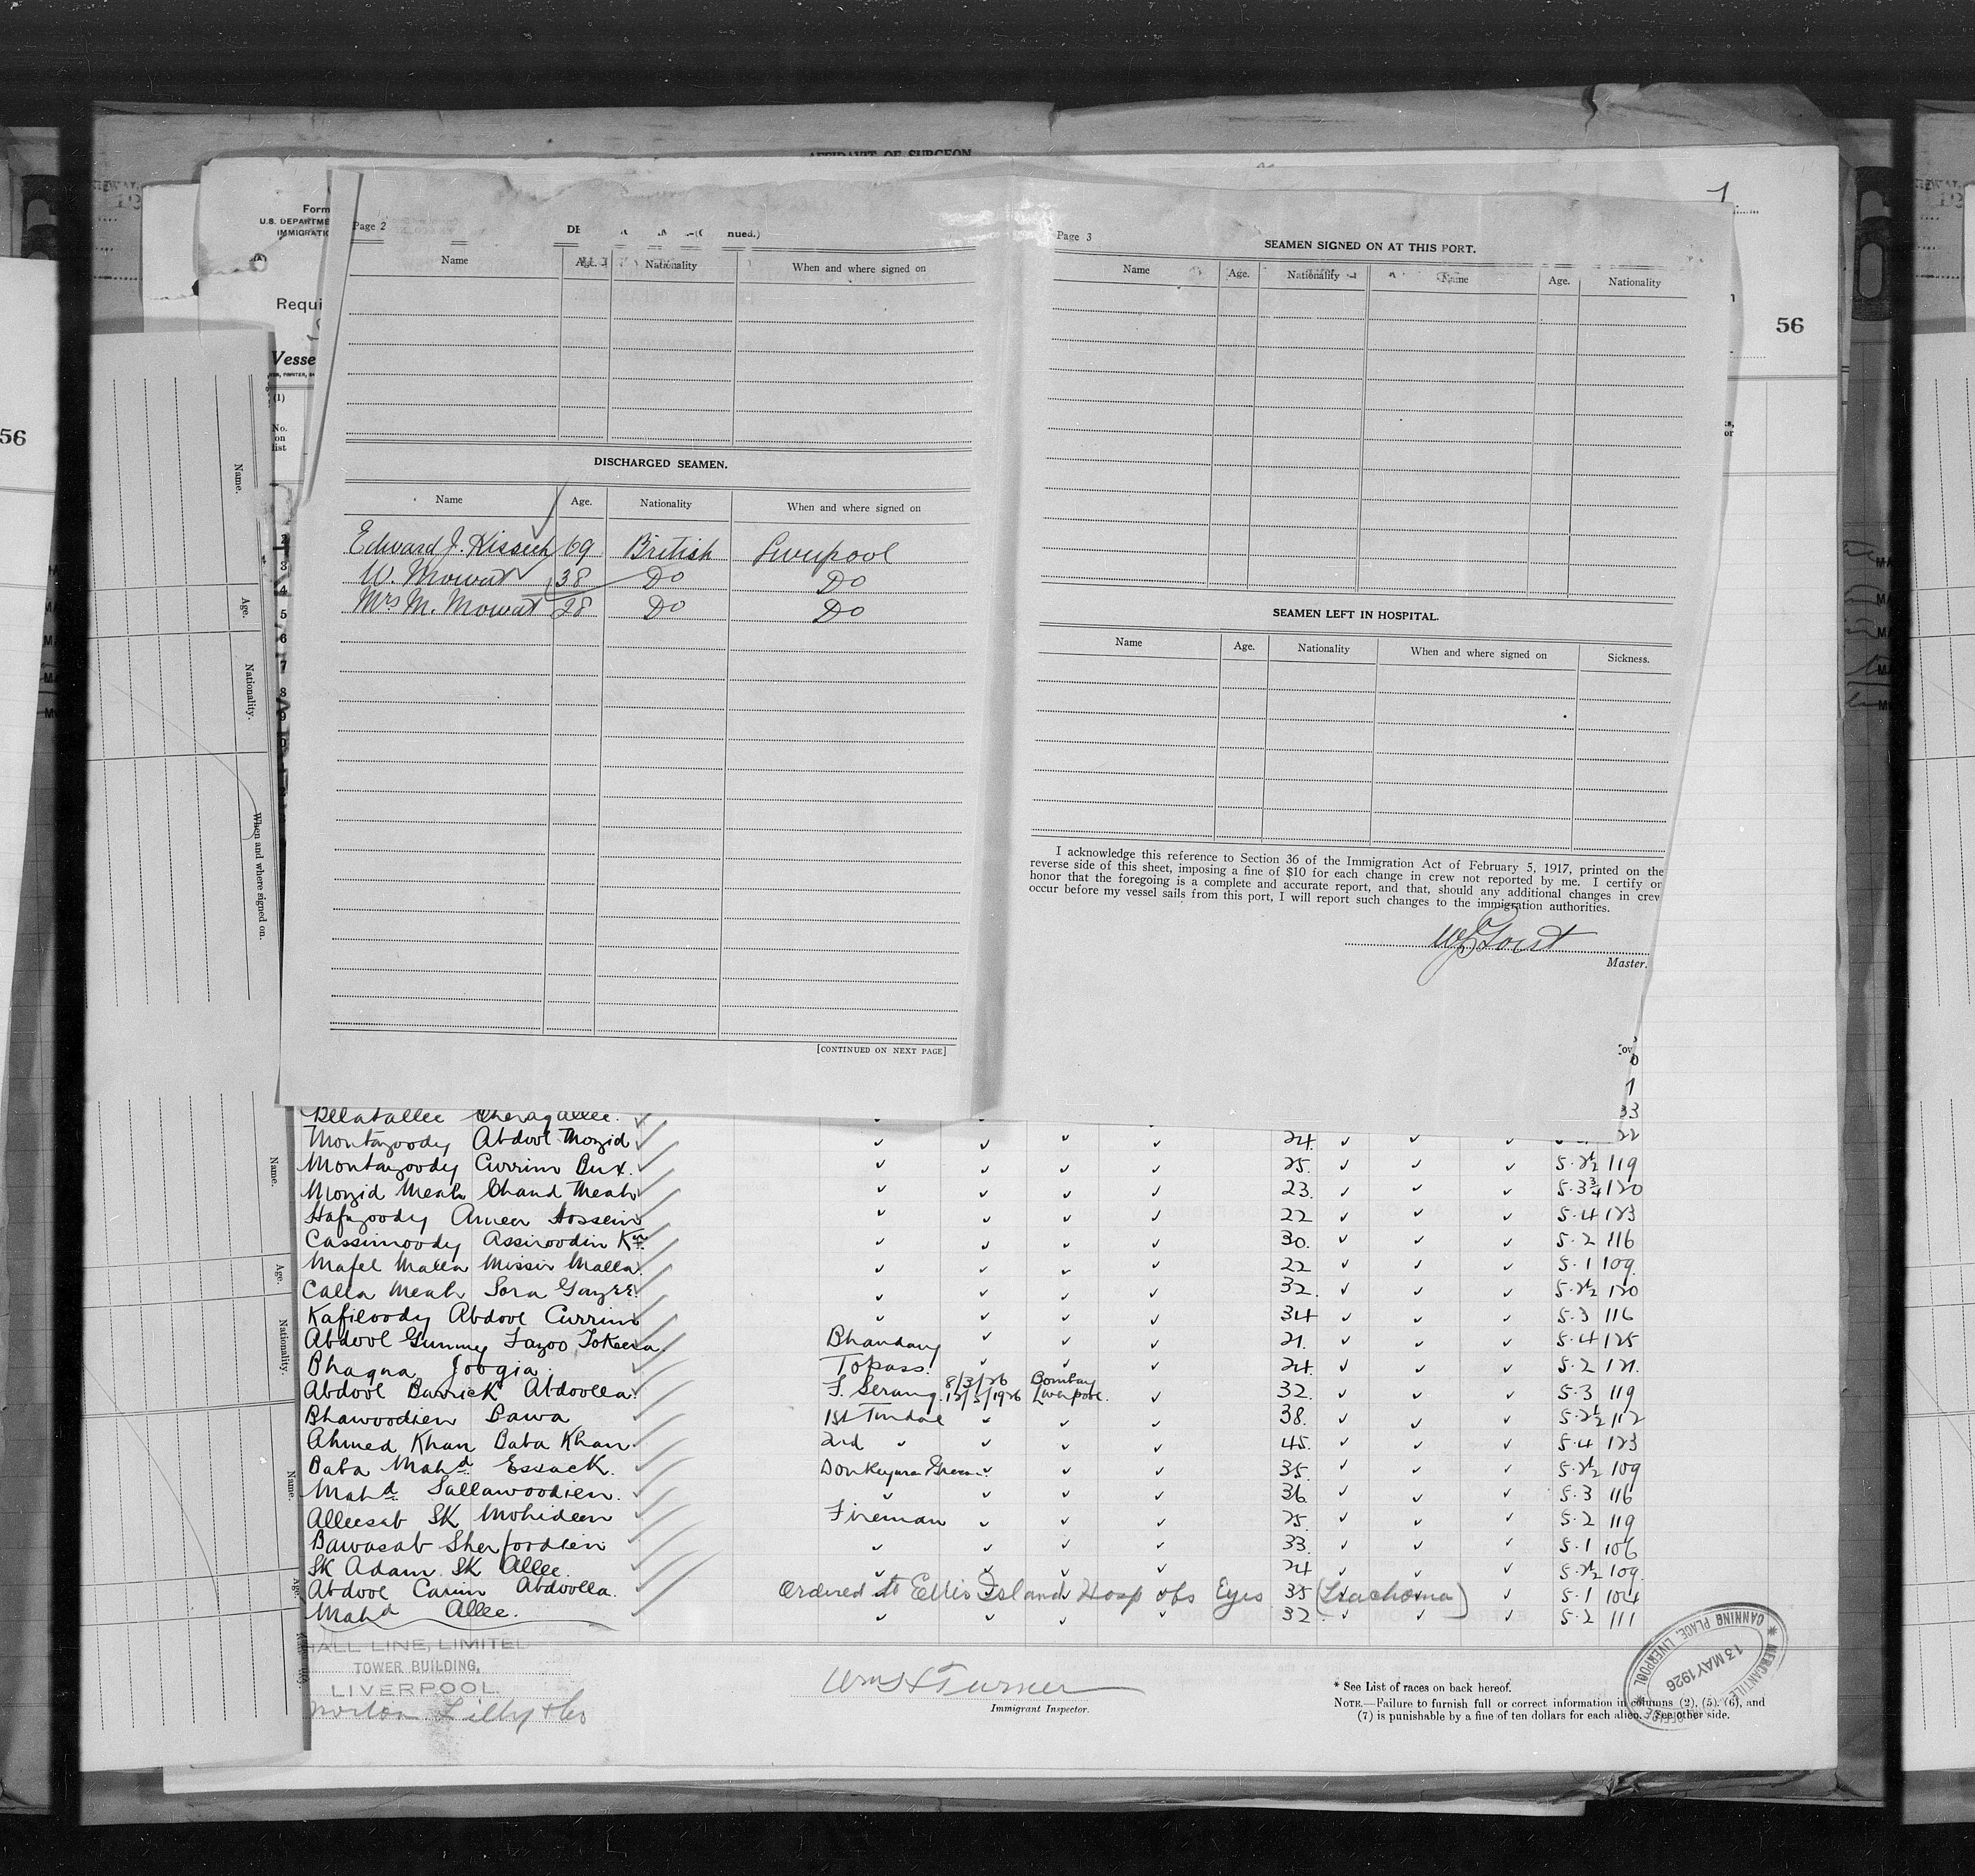 AFFIDAVIT OF SURGEON
1
Form
U.S. DEPARTME
IMMIGRATIC
Requi
Vesse
(1)
No.
on
list
56
56
Page 2
nued.)
Name
Age.
Nationality
When and where signed on
DISCHARGED SEAMEN.
Name
Age.
Nationality
When and where signed on
Edward J. 69 British Liverpool
W. Mowat 38 Do Do
Mrs M. Mowat 28 Do Do
[CONTINUED ON NEXT PAGE]
Page 3
SEAMEN SIGNED ON AT THIS PORT.
Name
Age.
Nationality
Name
Age.
Nationality
SEAMEN LEFT IN HOSPITAL.
Name
Age.
Nationality
When and where signed on
Sickness.
I acknowledge this reference to Section 36 of the Immigration Act of February 5, 1917, printed on the
reverse side of this sheet, imposing a fine of $10 for each change in crew not reported by me. I certify or
honor that the foregoing is a complete and accurate report, and that, should any additional changes in crev
occur before my vessel sails from this port, I will report such changes to the immigration authorities.
Master.
Name.
Age.
Nationality.
When and where signed on.
Name.
Age.
Nationality.
Name.
Age.
2
3
4
5
6
7
8
9
Bellatallee Cheragallee. 33
Montazoody Abdool Mozid 24. 22
Montazoody Currim Bux. 25. 5·2½ 119
Mozid Meah Chand Meah 23. 5·3¾ 120
Hafizoody Ameer Hossein 22 5·4 123
Cassimoody Assiroodin Kn 30. 5·2 116
Mafel Malla Missir Malla. 22 5·1 109
Calla Meah Sora Gazee 32. 5·2½ 120
Kafiloody Abdool Currim 34 5·3 116
Abdool Gunny Fazoo Bhandary 21. 5·4 125
Bhagna Joogia. Topass. 24. 5·2 121.
Abdool Barrick Abdoolla. F. Serang. 8/3/26 13/5/1926 Bombay Liverpool. 32. 5·3 119
Bhawoodien Bawa 1st Tindal 38. 5·2½ 112
Ahmed Khan Baba Khan. 2nd 45. 5·4 123
Baba Mahd Essack. Donkeyman Greaser 35. 5·2½ 109
Mahd Sallawoodien. 36. 5·3 116
Alleesab SK Mohideen Fireman 25. 5·2 119
Bawasab Sherfoodien 33. 5·1 106
SK Adam SK Allee. 24 5·2½ 109.
Abdool Carim Abdoolla. Ordered to Ellis Island Hosp obs Eyes 35 (Trachoma) 5·1 104
Mahd Allee. 32. 5·2 111
HALL LINE, LIMITED
TOWER BUILDING,
LIVERPOOL.
Norton Lilly & Co
Wm S Turner
Immigrant Inspector.
* See List of races on back hereof.
NOTE.—Failure to furnish full or correct information in columns (2), (5), (6), and
(7) is punishable by a fine of ten dollars for each alien. See other side.
MERCANTILE OFFICE
CANNING PLACE, LIVERPOOL
13 MAY 1926